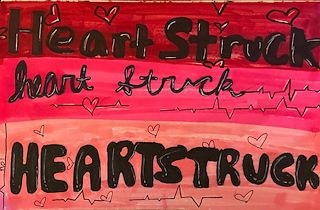 Heart Struck
heart struck
HEARTSTRUCK